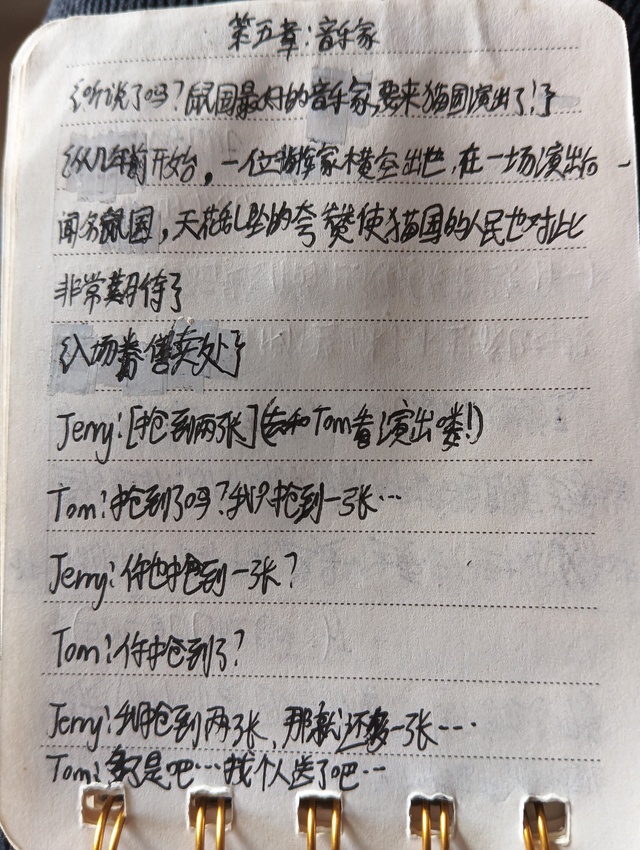 第五章:音乐家
{听说了吗?鼠国最好的音乐家,要来猫国演出了!}
{从几年前开始,一位指挥家横空出世,在一场演出后
闻名鼠国,天花乱坠的夸赞使猫国的人民也对此
非常期待}
{入场券售卖处}
Jerry:[抢到两张](去和Tom看演出喽!)
Tom:抢到了吗?我只抢到一张…
Jerry:你也抢到一张?
Tom:你抢到了?
Jerry:我抢到两张,那就还多一张…
Tom:是吧…找个人送了吧…